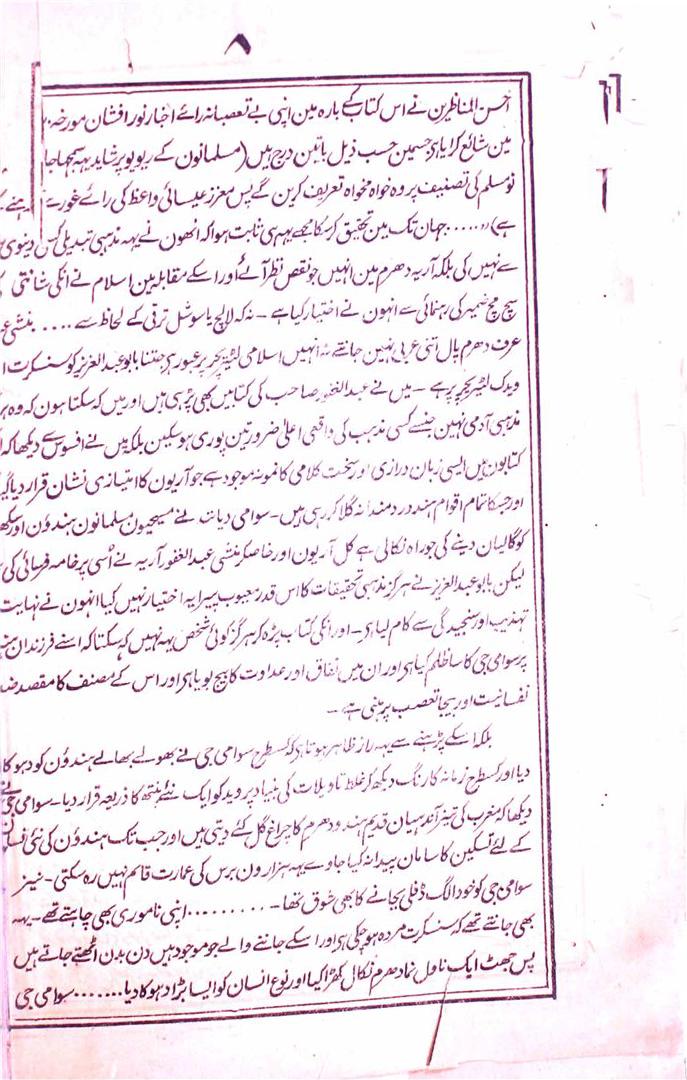 ۸
احسن المناظرین نے اس کتاب کے بارہ مین اپنی بے تعصبانہ رائے اخبار نور افشان مورخہ
مین شائع کرایا ہی جسمین حسب ذیل باتین درج ہیں (مسلمانون کے ریویو پر شاید یہہ سمجھا جا
نو مسلم کی تصنیف پر وہ خواہ مخواہ تعریف کرین گے پس معزز عیسائی واعظ کی رائے غور سے
ہے)،، ..... جہان تک مین تحقیق کر سکا مجھے یہہ ہی ثابت ہوا کہ انھون نے یہہ مذہبی تبدیلی کسی دینوی
سے نہیں کی بلکہ آریہ دھرم مین انہیں جو نقص نظر آئے اور اسکے مقابلہ مین اسلام نے انکی شانتی کی
سچ مچ ضمیر کی رہنمائی سے انہون نے اختیار کیا ہے ۔ نہ کہ لالچ یا سوشل ترقی کے لحاظ سے .... منشی
عرف دھرم پال اتنی عربی نہین جانتے نہ انہیں اسلامی لٹریچر پر عبور ہی جتنا بابو عبد العزیز کو سنسکرت ا
ویدک لٹریچر پر ہے ۔ میں نے عبد الغفور صاحب کی کتابیں بھی پڑہی ہیں اور میں کہ سکتا ہون کہ وہ
مذہبی آدمی نہین جنسے کسی مذہب کی واقعی اعلیٰ ضرورتین پوری ہوسکین بلکہ میں نے افسوس سے دیکھا کہ
کتابون میں ایسی زبان درازی اور سخت کلامی کا نمونہ موجود ہے جو آریون کا امتیازی نشان قرار دیا گیا
اور جسکا تمام اقوام ہند درد مندانہ گلا کر رہی ہیں ۔ سوامی دیانند نے مسیحیون مسلمانون ہندوٴن اور سکھ
کو گالیان دینے کی جو راہ نکالی ہے کل آریون اور خاصکر منشی عبد الغفور آریہ نے اُسی پر خامہ فرسائی کی
لیکن بابو عبد العزیز نے ہرگز مذہبی تحقیقات کا اس قدر معیوب پیرایہ اختیار نہیں کیا انہون نے نہایت
تہذیب اور سنجیدگی سے کام لیا ہی ۔ اور انکی کتاب پڑہ کر ہرگز کوئی شخص یہہ نہیں کہ سکتا کہ اسنے فرزندان
پر سوامی جی کا سا ظلم کیا ہی اور ان میں نفاق اور عداوت کا بیج بویا ہی اور اس کے مصنف کا مقصد
نفسانیت اور بیجا تعصب پر مبنی ہے ۔
بلکہ اسکے پڑہنے سے یہہ راز ظاہر ہوتا ہی کہ کسطرح سوامی جی نے بھولے بھالے ہندوٴن کو دہوکا
دیا اور کسطرح زمانہ کا رنگ دیکھ کر غلط تاویلات کی بنیاد پر وید کو ایک نئے پنتھ کا ذریعہ قرار دیا ۔ سوامی جی نے
دیکھا کہ مغرب کی تیز آندہیان قدیم ہندو دھرم کا چراغ گل کئے دیتی ہیں اور جب تک ہندوٴن کی نئی نسلون
کے لئے تسکین کا سامان پیدا نہ کیا جاوے یہہ ہزارون برس کی عمارت قائم نہیں رہ سکتی ۔ نیز
سوامی جی کو خود الگ ڈفلی بجانے کا بھی شوق تھا ۔ ......... اپنی ناموری بھی چاہتے تھے ۔ یہہ
بھی جانتے تھے کہ سنسکرت مردہ ہوچکی ہی اور اسکے جاننے والے جو موجود ہیں دن بدن اٹھتے جاتے ہیں
پس جھٹ ایک ناول نما دھرم نکال کھڑا کیا اور نوع انسان کو ایسا بڑا دہوکا دیا ...... سوامی جی